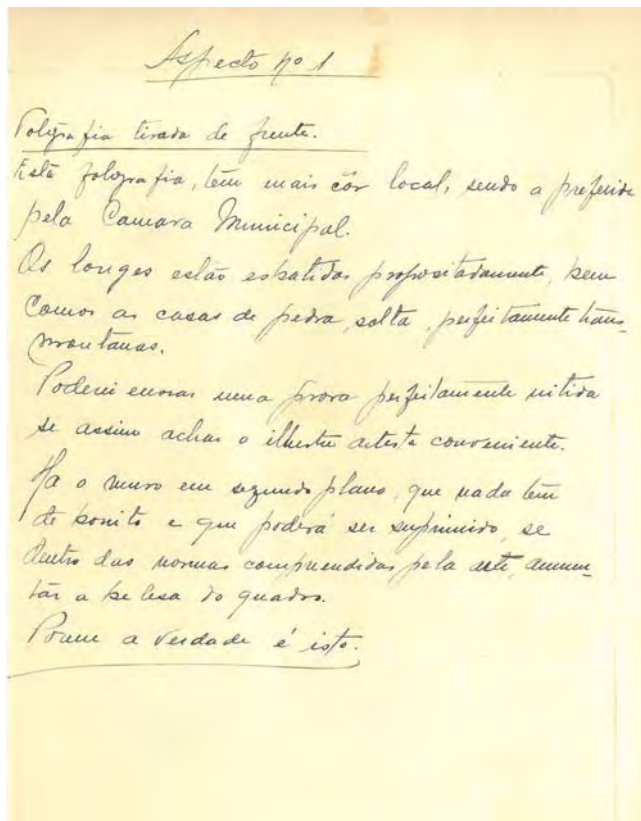 Aspecto nº 1
Fotografia tirada de frente.
Esta fotografia, têm mais côr local, sendo a preferida
pela Camara Municipal.
Os longes estão esbatidos propositadamente, bem
como as casas de pedra, solta, perfeitamente trans-
montanas.
Poderei enviar uma prova perfeitamente nitida
se assim achar o illustre artista conveniente.
Ha o muro em segundo plano, que nada têm
de bonito e que poderá ser suprimido, se
dentro das normas comprendidas pela arte, aumen-
tar a belesa do quadro.
Porem a verdade é isto.